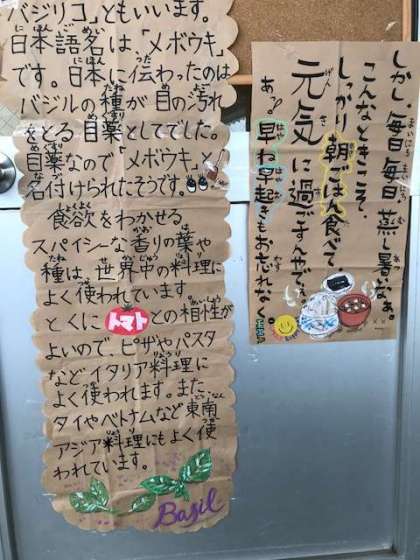 バジリコ」ともいいます。
日本語名は、「メボウキ」
です。日本に伝わったのは
バジルの種が目の汚れ
をとる目薬としてでした。
目薬なので「メボウキ」
名付けられたそうです。
食欲をわかせる
スパイシーな香りの葉や
種は、世界中の料理に
よく使われています
とくにトマトとの相性が
よいので、ピザやパスタ
などイタリア料理に
よく使われます。また、
タイやベトナムなど東南
アジア料理にもよく使
われています。
Basil
しかし毎日毎日蒸し暑なぁ。
こんなときこそ、
しっかり朝ごはん食べて、
元気に過ごすんやで。
あっ
早ね早起きもお忘れなく。